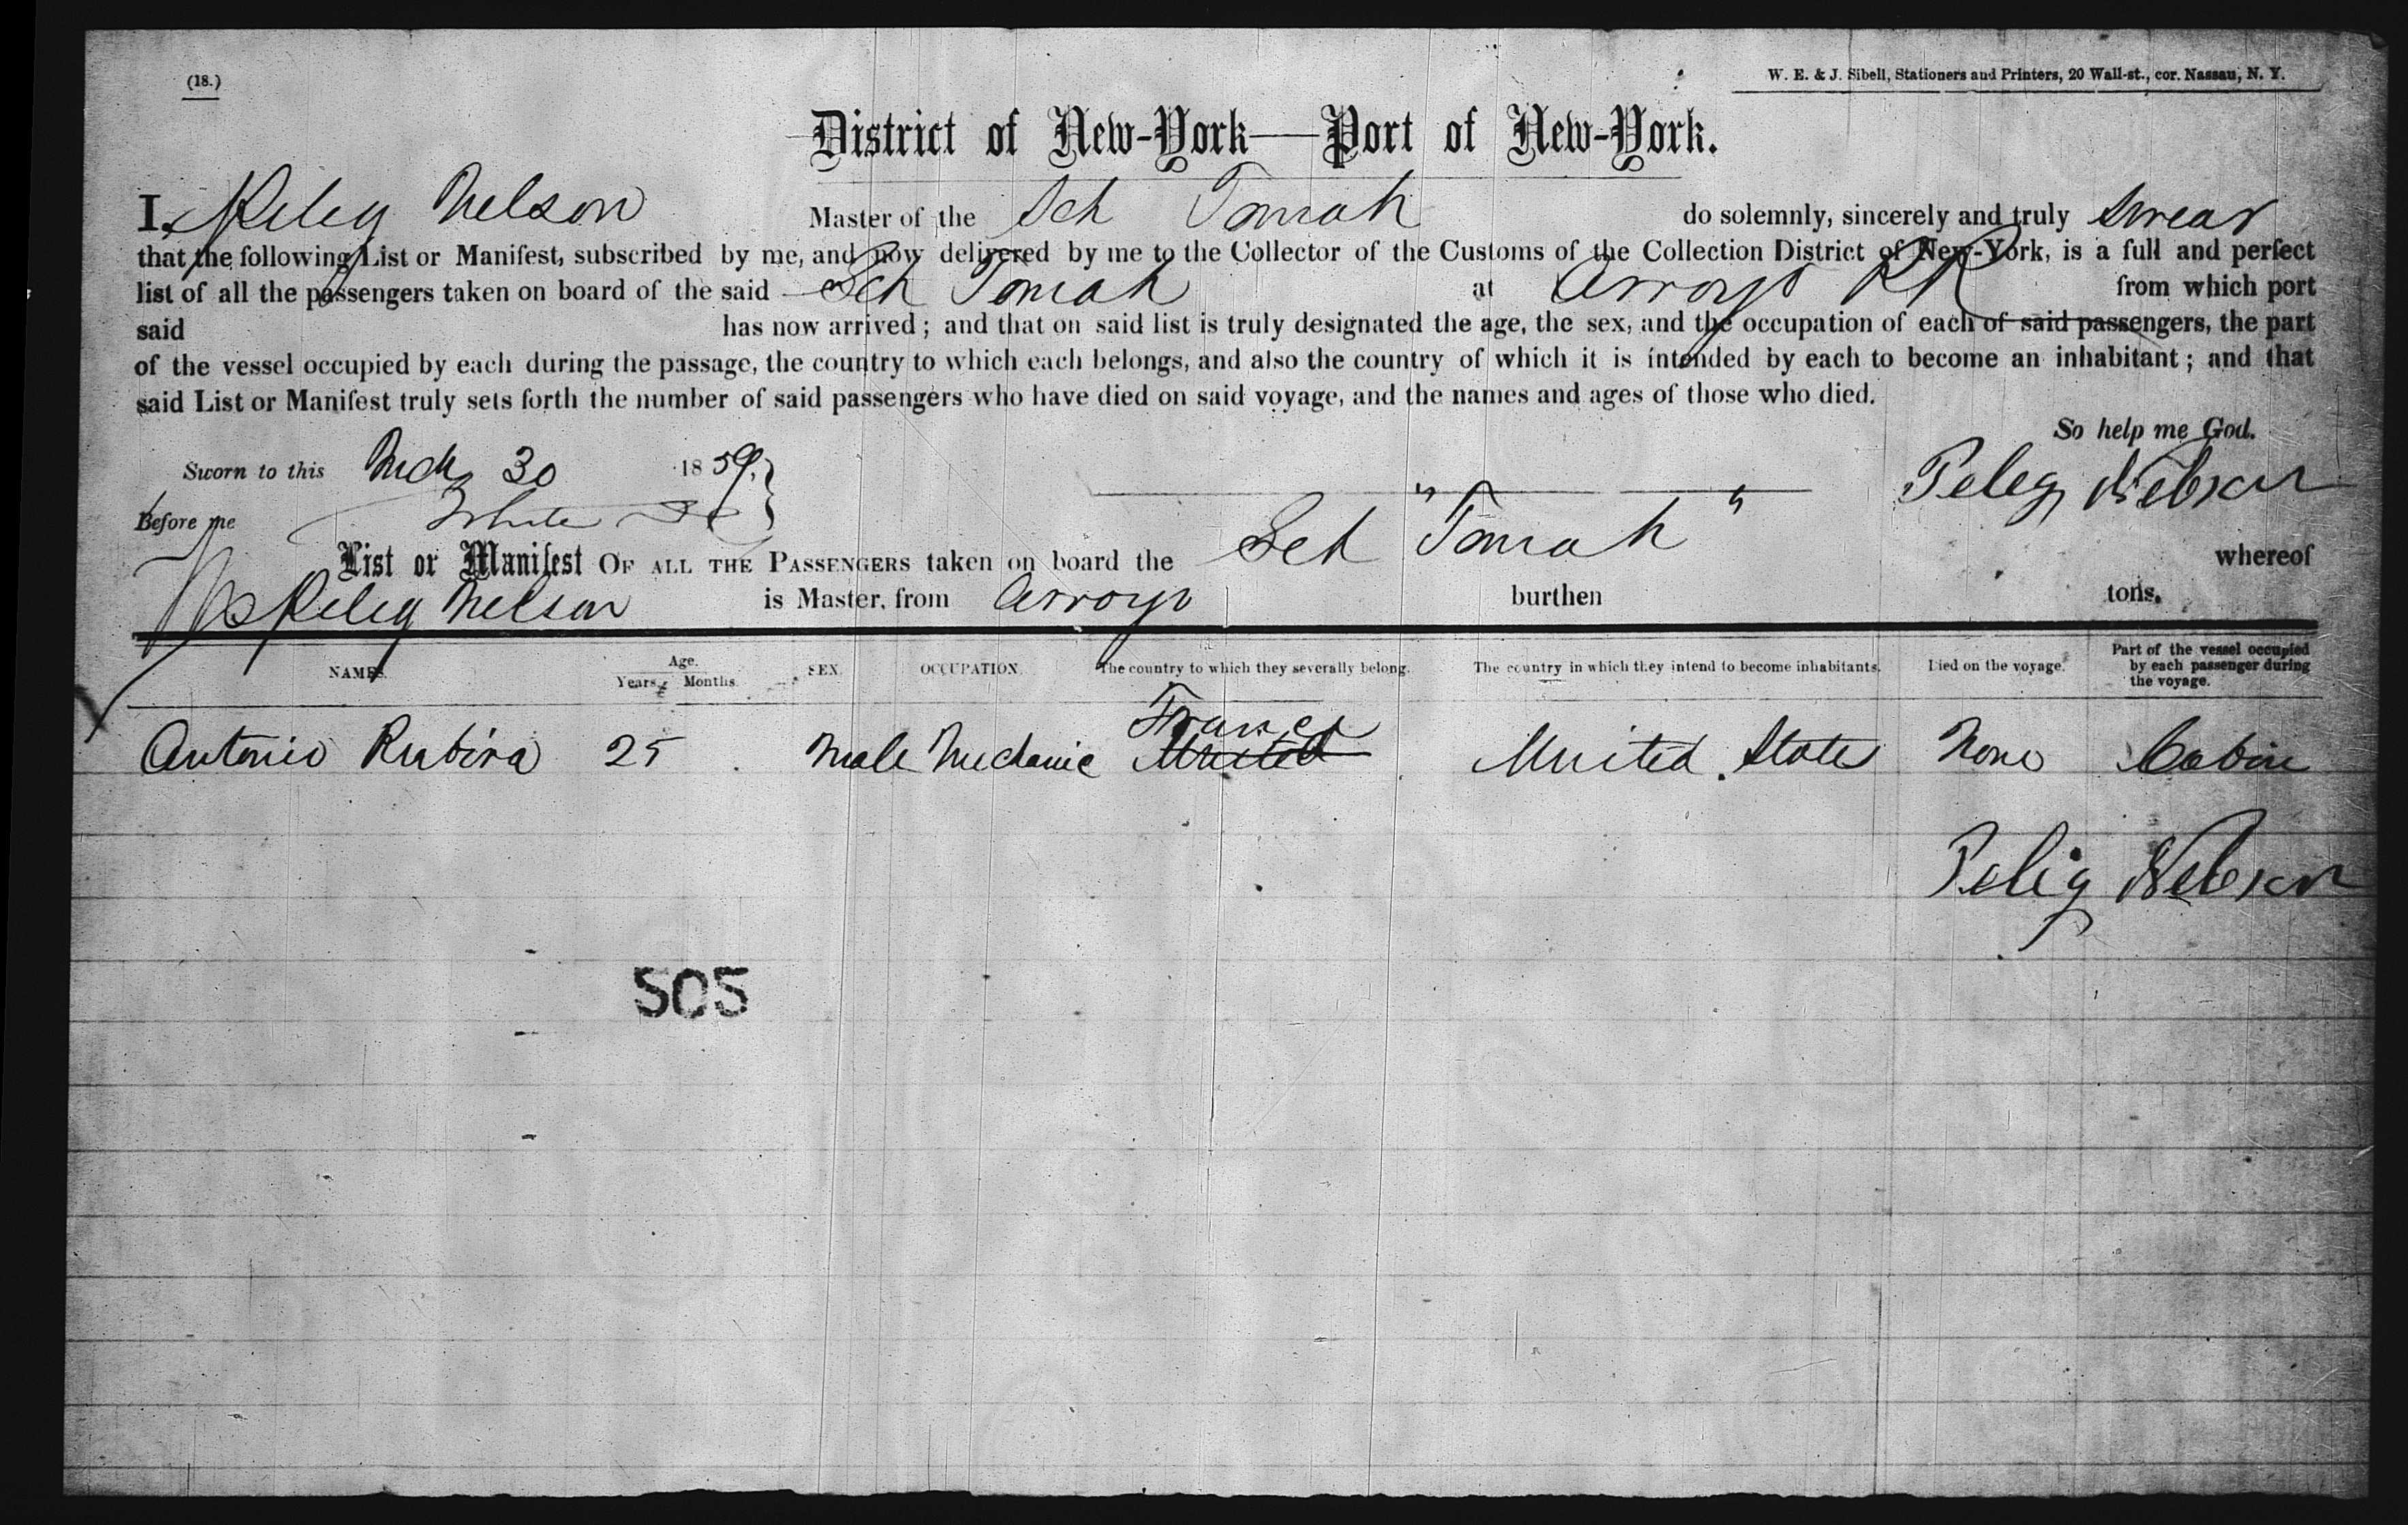 (18.)
W. E. & J. Sibell, Stationers and Printers, 20 Wall-st., cor. Nassau, N. Y.
District of New-York—Port of New-York.
I, Peleg Nelson Master of the Sch Tomah do solemnly, sincerely and truly swear
that the following List or Manifest, subscribed by me, and now delivered by me to the Collector of the Customs of the Collection District of New-York, is a full and perfect
list of all the passengers taken on board of the said Sch Tomah at Arroyo PR from which port
said has now arrived; and that on said list is truly designated the age, the sex, and the occupation of each of said passengers, the part
of the vessel occupied by each during the passage, the country to which each belongs, and also the country of which it is intended by each to become an inhabitant; and that
said List or Manifest truly sets forth the number of said passengers who have died on said voyage, and the names and ages of those who died.
So help me God.
Sworn to this Mch 30 1859. Peleg Nelson
Before me White
List or Manifest OF ALL THE PASSENGERS taken on board the Sch "Tomah" whereof
Peleg Nelson is Master, from Arroyo burthen tons.
NAMES. Age. Years. Months. SEX. OCCUPATION. The country to which they severally belong. The country in which they intend to become inhabitants. Died on the voyage. Part of the vessel occupied by each passenger during the voyage.
France
Antonio Rubira 25 Male Mechanic United United States None Cabin
Peleg Nelson
505